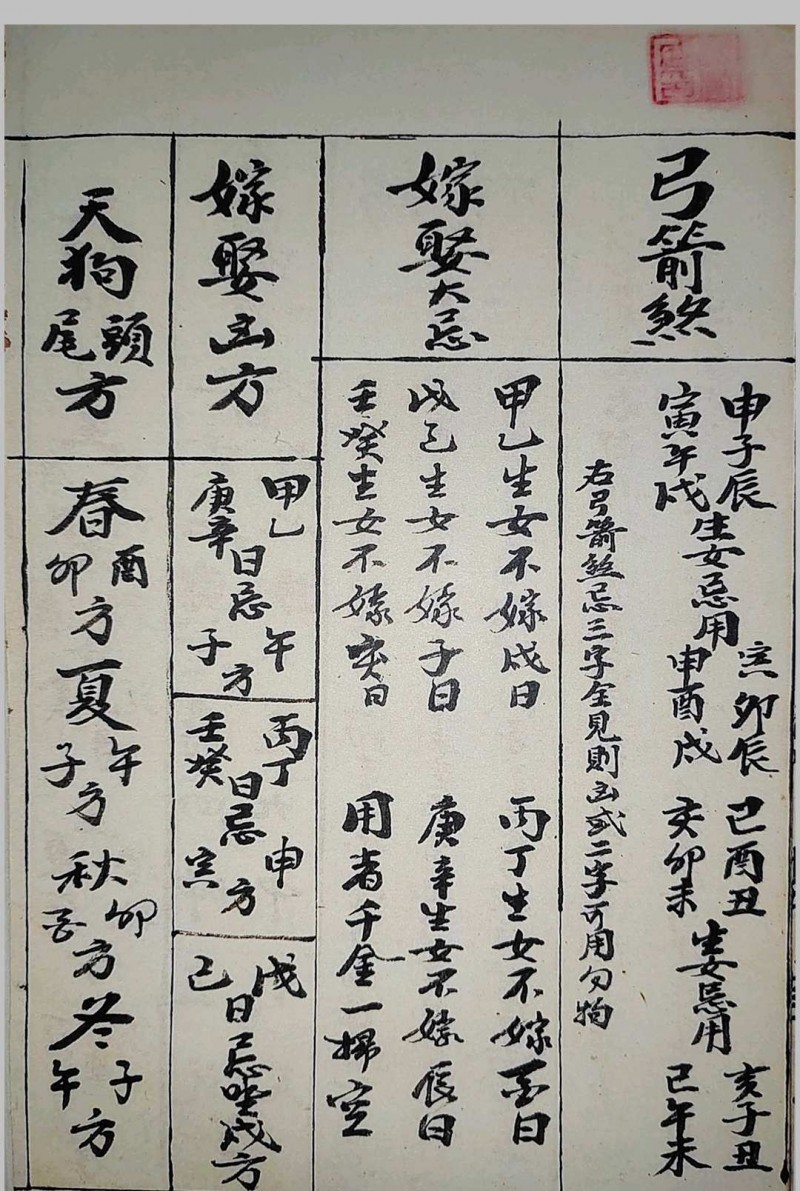 弓箭煞
申子辰
寅午戌
生女忌用
寅卯辰
申酉戌
巳酉丑
亥卯未
生女忌用
亥子丑
巳午未
右弓箭煞忌三字全見則凶或二字可用勿拘
嫁娶大忌
甲乙生女不嫁戌日 丙丁生女不嫁酉日
戊己生女不嫁子日 庚辛生女不嫁辰日
壬癸生女不嫁寅日 用者千金一掃空
嫁娶凶方
甲乙
庚辛
日忌
午
子
方
丙丁
壬癸
日忌
申
寅
方
戊
己
日忌坐戌方
天狗
頭
尾
方
春
酉
卯
方
夏
午
子
方
秋
卯
酉
方
冬
子
午
方